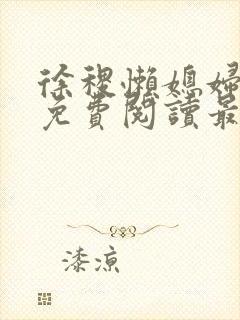 徐稷懶媳婦
免費閱讀最
漆涼